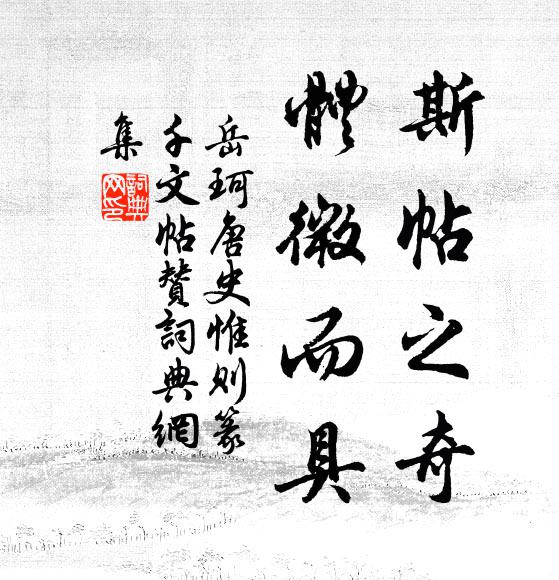 斯帖之奇
體微而具
岳珂唐史惟則篆
千文帖贊詞典網
集
詞典
网印